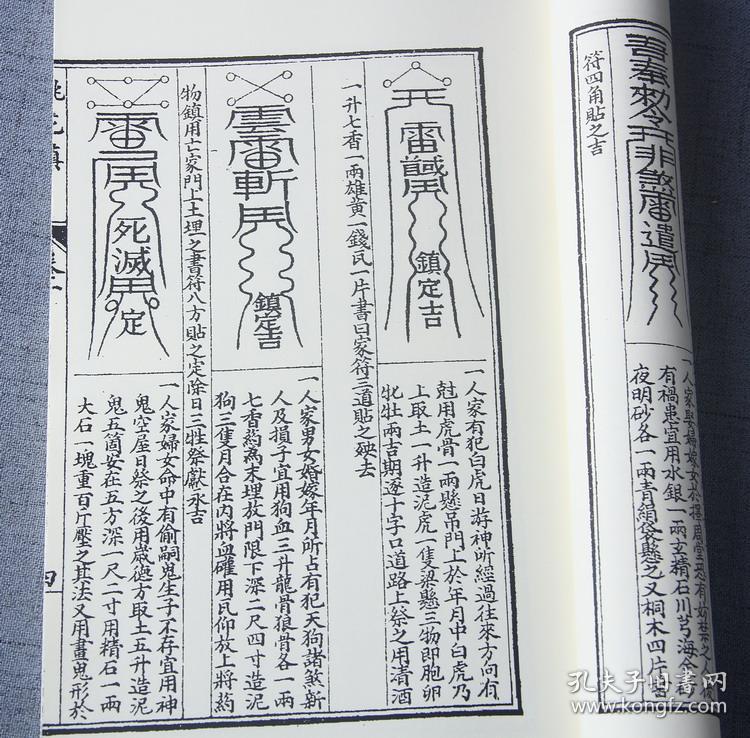 善奉勅令
遣
符四角貼之吉
一人家娶婦嫁女於
有禍患宜用水銀一兩玄精石川芎海金
夜明砂各一兩青絹袋懸之又桐木四片
雷
鎮定吉
一人家有犯白虎日游神所經過往來方向有
尅用虎骨一兩懸吊門上於年月中白虎乃
上取土一升造泥虎一隻梁懸三物即胞卵
牝牡兩吉期逐十字口道路上祭之用清酒
一升七香一兩雄黃一錢瓦一片書曰家符三道貼之殃去
雲雷斬
鎮定吉
一人家男女婚嫁年月所占有犯天狗諸煞新
人及損子宜用狗血三升龍骨狼骨各一兩
七香葯為末埋放門限下深二尺四寸造泥
狗三隻月合在內將血確用瓦仰放上將葯
物鎮用亡家門上土埋之書符八方貼之定除日三牲祭獻永吉
死滅
定
一人家婦女命中有偷嗣鬼生子不存宜用神
鬼空屋日祭之後用歲德方取土五升造泥
鬼五箇安在五方深一尺二寸用精石一兩
大石一塊重百斤壓之其法又用畫鬼形於
四
孔夫子旧书网
www.kongfz.com